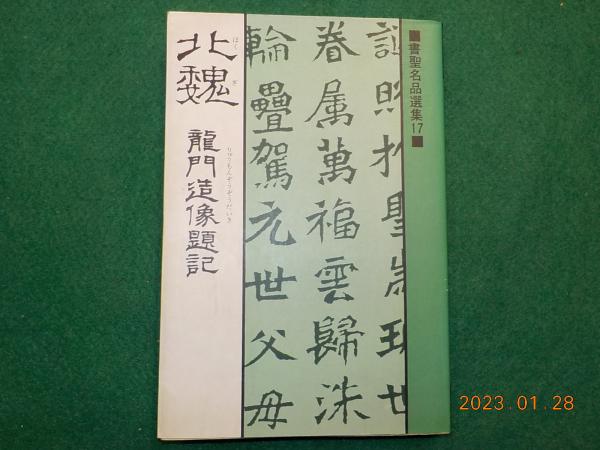 ■書聖名品選集17■
照於聖
眷属萬福雲歸洙
輪疊駕元世父母
北魏
ほくぎ
龍門造像題記
りゅうもんぞうぞうだいき
2023.01.28